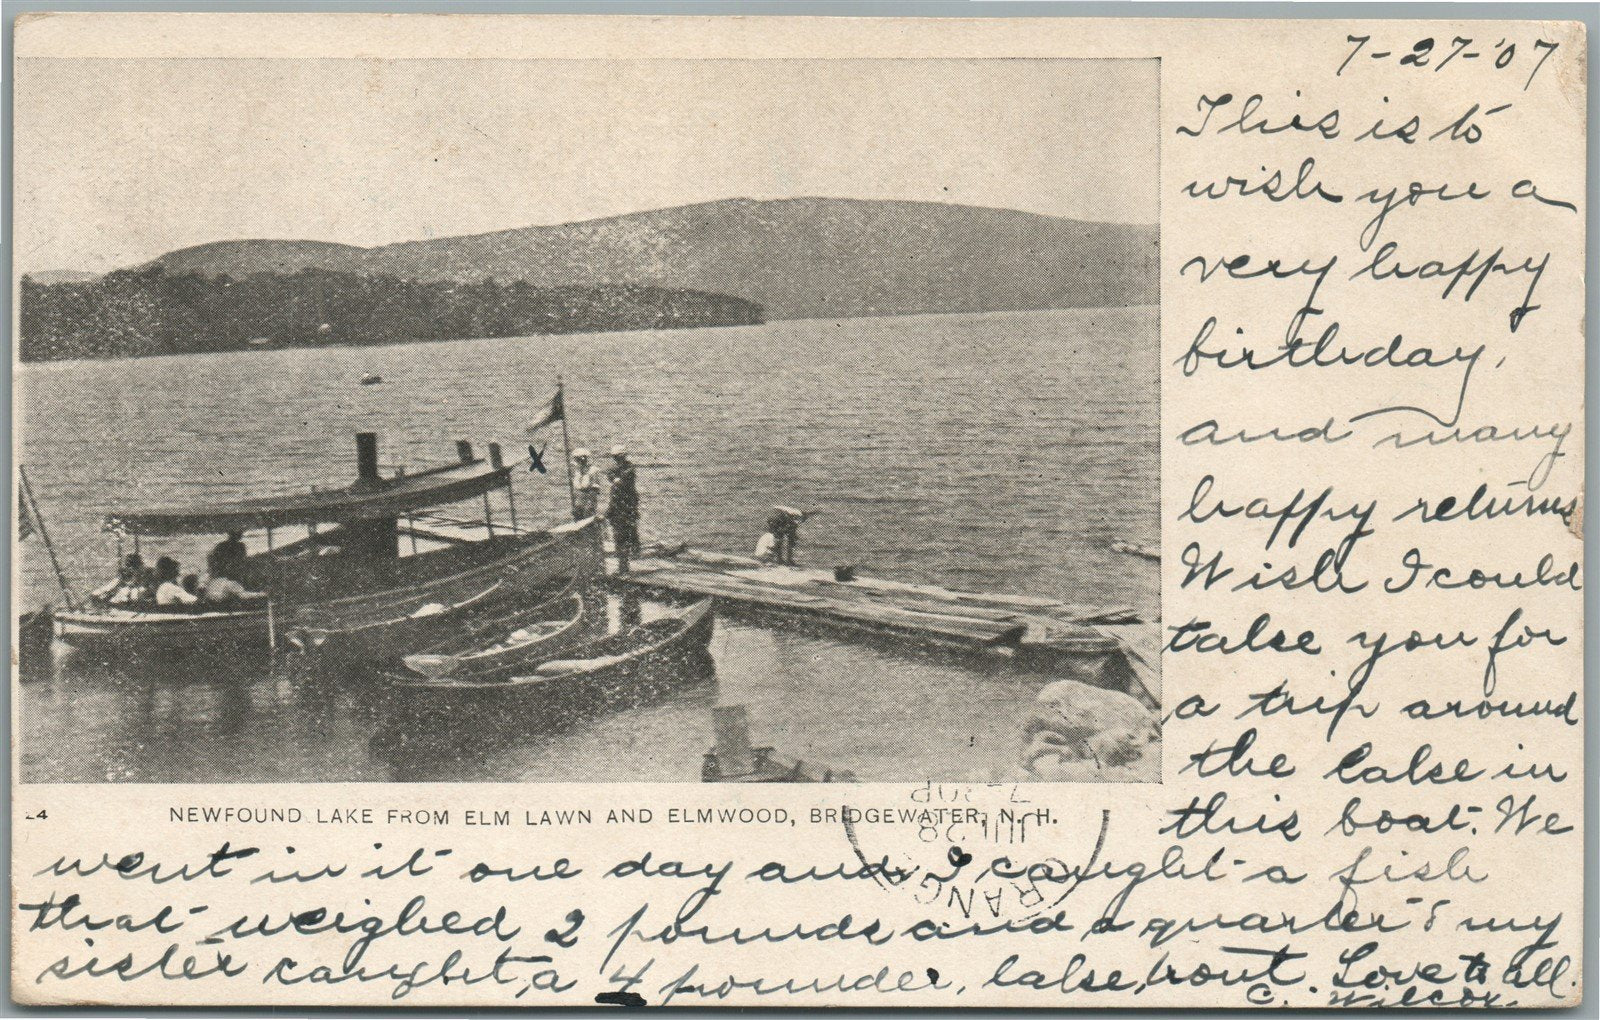 7-27-'07
This is to
wish you a
very happy
birthday,
and many
happy returns
Wish I could
take you for
a trip around
the lake in
this boat. We
went in it one day and I caught a fish
that weighed 2 pounds and a quarter & my
sister caught, a 4 pounder, lake trout. Love to all.
C. Wilcox.
X
24
NEWFOUND LAKE FROM ELM LAWN AND ELMWOOD, BRIDGEWATER, N. H.
JUL 28
7-30P